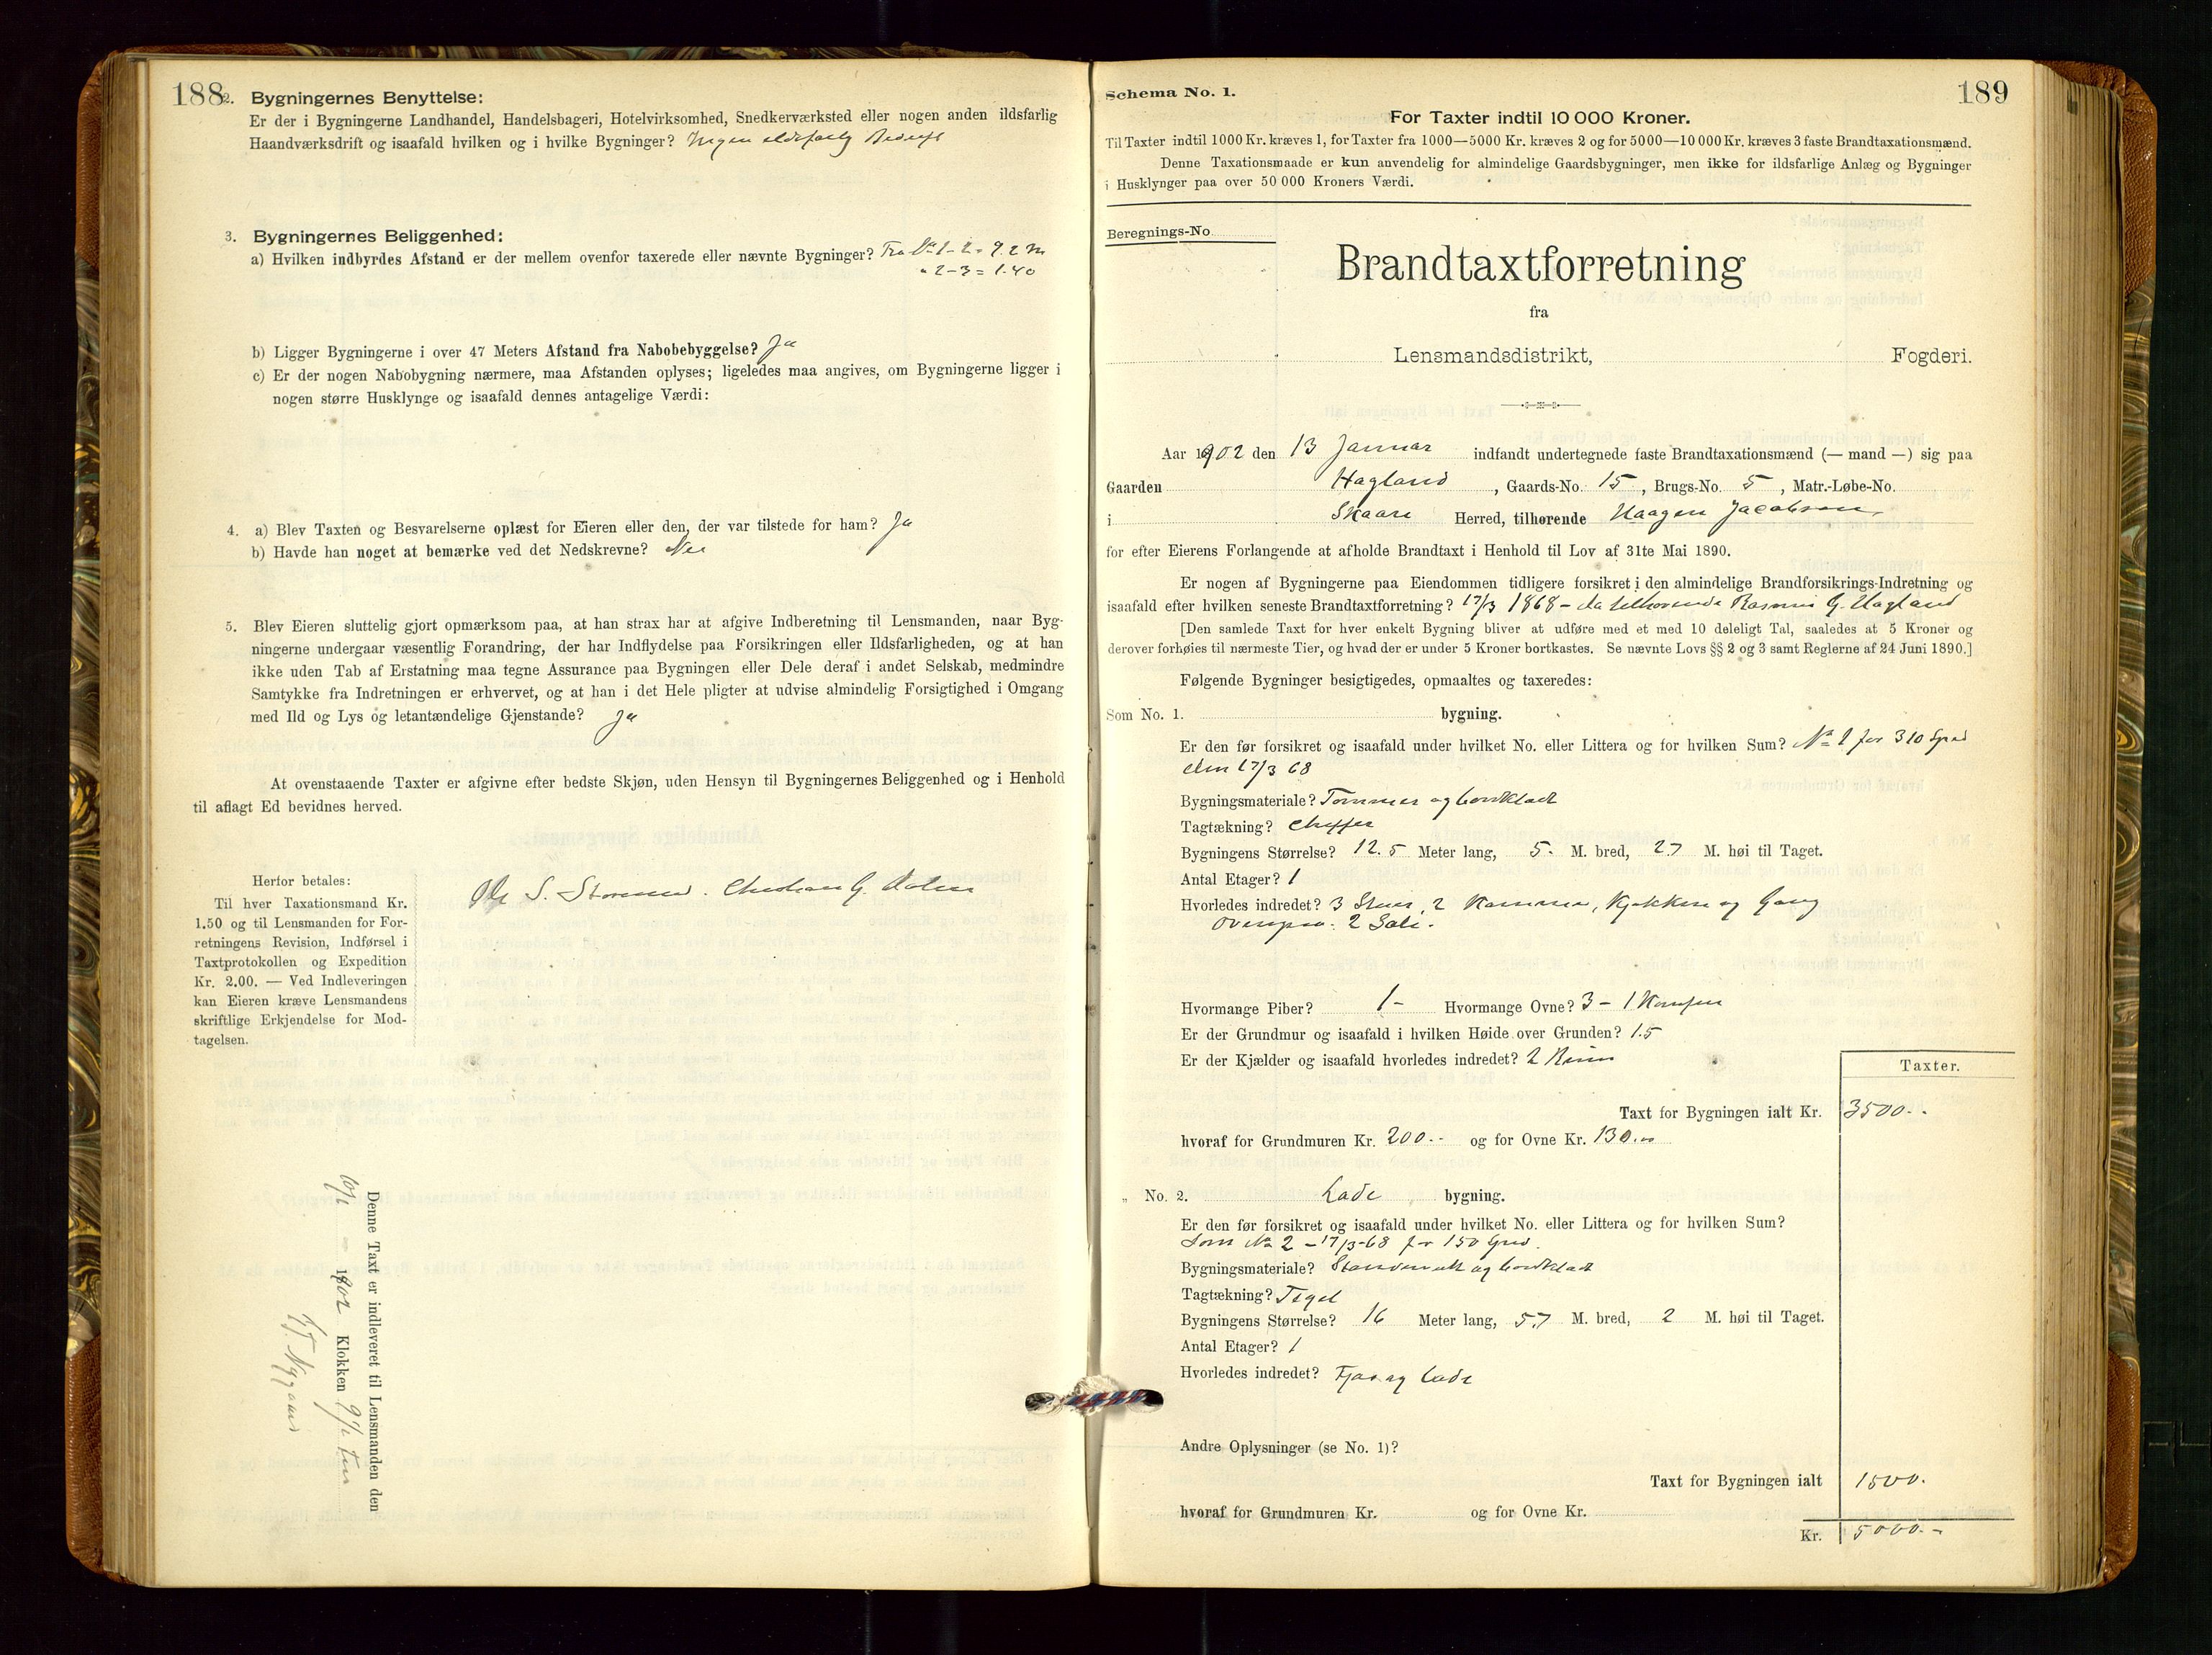 188
2. Bygningernes Benyttelse:
Er der i Bygningerne Landhandel, Handelsbageri, Hotelvirksomhed, Snedkerværksted eller nogen anden ildsfarlig
Haandværksdrift og isaafald hvilken og i hvilke Bygninger? Ingen ildsfarlig Bedrift
3. Bygningernes Beliggenhed:
a) Hvilken indbyrdes Afstand er der mellem ovenfor taxerede eller nævnte Bygninger? Fra No 1-2 = 9.2 m
" 2-3 = 1.40
b) Ligger Bygningerne i over 47 Meters Afstand fra Nabobebyggelse? Ja
c) Er der nogen Nabobygning nærmere, maa Afstanden oplyses; ligeledes maa angives, om Bygningerne ligger i
nogen større Husklynge og isaafald dennes antagelige Værdi:
4. a) Blev Taxten og Besvarelserne oplæst for Eieren eller den, der var tilstede for ham? Ja
b) Havde han noget at bemærke ved det Nedskrevne? Nei
5. Blev Eieren sluttelig gjort opmærksom paa, at han strax har at afgive Indberetning til Lensmanden, naar Byg-
ningerne undergaar væsentlig Forandring, der har Indflydelse paa Forsikringen eller Ildsfarligheden, og at han
ikke uden Tab af Erstatning maa tegne Assurance paa Bygningen eller Dele deraf i andet Selskab, medmindre
Samtykke fra Indretningen er erhvervet, og at han i det Hele pligter at udvise almindelig Forsigtighed i Omgang
med Ild og Lys og letantændelige Gjenstande? Ja
At ovenstaaende Taxter er afgivne efter bedste Skjøn, uden Hensyn til Bygningernes Beliggenhed og i Henhold
til aflagt Ed bevidnes herved.
Herfor betales:
Til hver Taxationsmand Kr.
1.50 og til Lensmanden for For-
retningens Revision, Indførsel i
Taxtprotokollen og Expedition
Kr. 2.00. — Ved Indleveringen
kan Eieren kræve Lensmandens
skriftlige Erkjendelse for Mod-
tagelsen.
S. Christian G.
Denne Taxt er indleveret til Lensmanden den
1902 Klokken
189
Schema No. 1.
For Taxter indtil 10 000 Kroner.
Til Taxter indtil 1000 Kr. kræves 1, for Taxter fra 1000—5000 Kr. kræves 2 og for 5000—10 000 Kr. kræves 3 faste Brandtaxationsmænd.
Denne Taxationsmaade er kun anvendelig for almindelige Gaardsbygninger, men ikke for ildsfarlige Anlæg og Bygninger
i Husklynger paa over 50 000 Kroners Værdi.
Beregnings-No
Brandtaxtforretning
fra
Lensmandsdistrikt, Fogderi.
Aar 1902 den 13 Januar indfandt undertegnede faste Brandtaxationsmænd (— mand —) sig paa
Gaarden Hagland, Gaards-No. 15, Brugs-No. 5, Matr.-Løbe-No.
i Skaare Herred, tilhørende Haagen Jacobsen
for efter Eierens Forlangende at afholde Brandtaxt i Henhold til Lov af 31te Mai 1890.
Er nogen af Bygningerne paa Eiendommen tidligere forsikret i den almindelige Brandforsikrings-Indretning og
isaafald efter hvilken seneste Brandtaxtforretning? 17/3 1868 - da tilhørende Rasmus G. Hagland
[Den samlede Taxt for hver enkelt Bygning bliver at udføre med et med 10 deleligt Tal, saaledes at 5 Kroner og
derover forhøies til nærmeste Tier, og hvad der er under 5 Kroner bortkastes. Se nævnte Lovs §§ 2 og 3 samt Reglerne af 24 Juni 1890.]
Følgende Bygninger besigtigedes, opmaaltes og taxeredes:
Som No. 1. bygning.
Er den før forsikret og isaafald under hvilket No. eller Littera og for hvilken Sum? No 1 for 310 Spd
den 17/3 68
Bygningsmateriale? Tømmer og bordklædt
Tagtækning? Skiffer
Bygningens Størrelse? 12.5 Meter lang, 5. M. bred, 2.7 M. høi til Taget.
Antal Etager? 1
Hvorledes indredet? 3 Stuer, 2 Kammer, Kjøkken og Gang
ovenpaa: 2 Sale.
Hvormange Piber? 1 - Hvormange Ovne? 3 - 1 Komfur
Er der Grundmur og isaafald i hvilken Høide over Grunden? 1.5
Er der Kjælder og isaafald hvorledes indredet? 2 Rum
Taxter.
Taxt for Bygningen ialt Kr. 3500.-
hvoraf for Grundmuren Kr. 200.- og for Ovne Kr. 130.00
" No. 2. Lade bygning.
Er den før forsikret og isaafald under hvilket No. eller Littera og for hvilken Sum?
Som No 2 - 17/3-68 for 150 Spd.
Bygningsmateriale? Stavværk og bordklædt
Tagtækning? Tegel
Bygningens Størrelse? 16 Meter lang, 5.7 M. bred, 2 M. høi til Taget.
Antal Etager? 1
Hvorledes indredet? Fjøs og Lade
Andre Oplysninger (se No. 1)?
Taxt for Bygningen ialt 1500.
hvoraf for Grundmuren Kr. og for Ovne Kr.
Kr. 5000.-